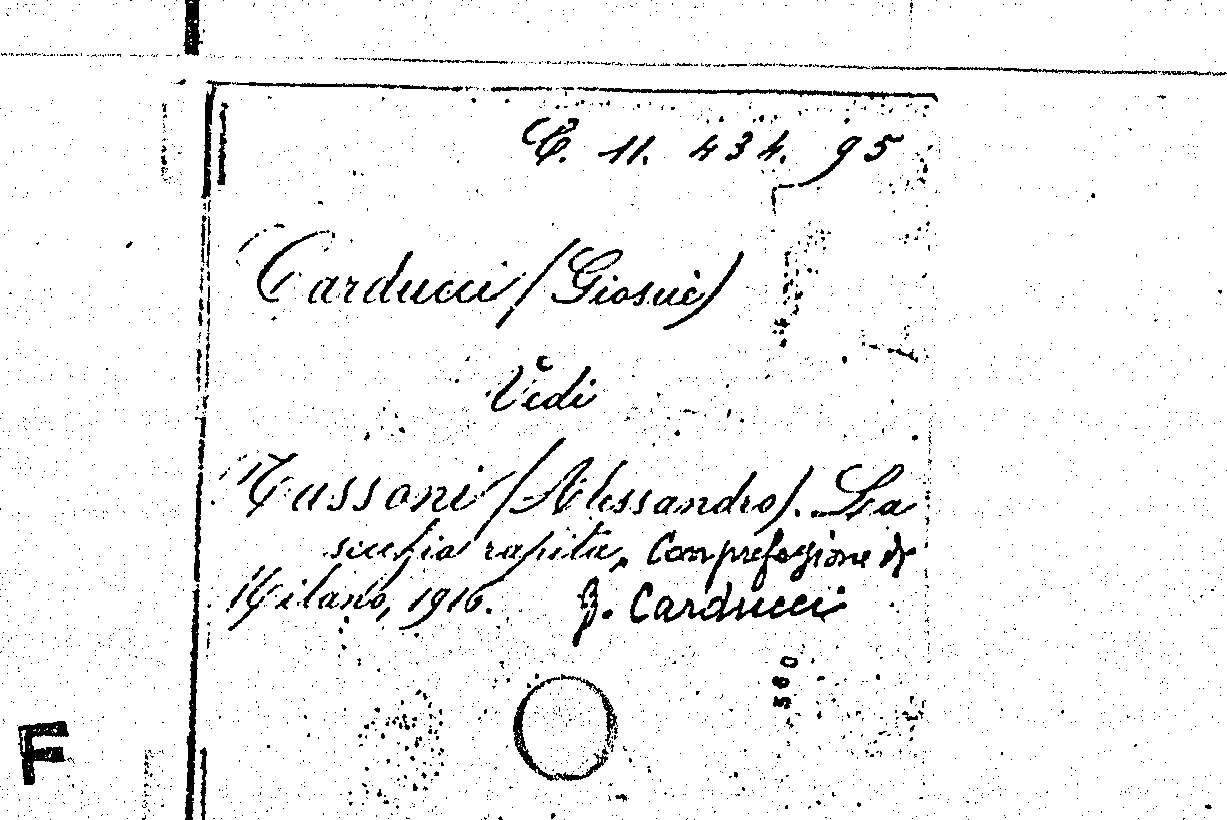 C. 11. 434. 95
Carducci (Giosuè)
Vedi
Tassoni (Alessandro). La
secchia rapita. Con prefazione di
Milano, 1916. G. Carducci
560
F